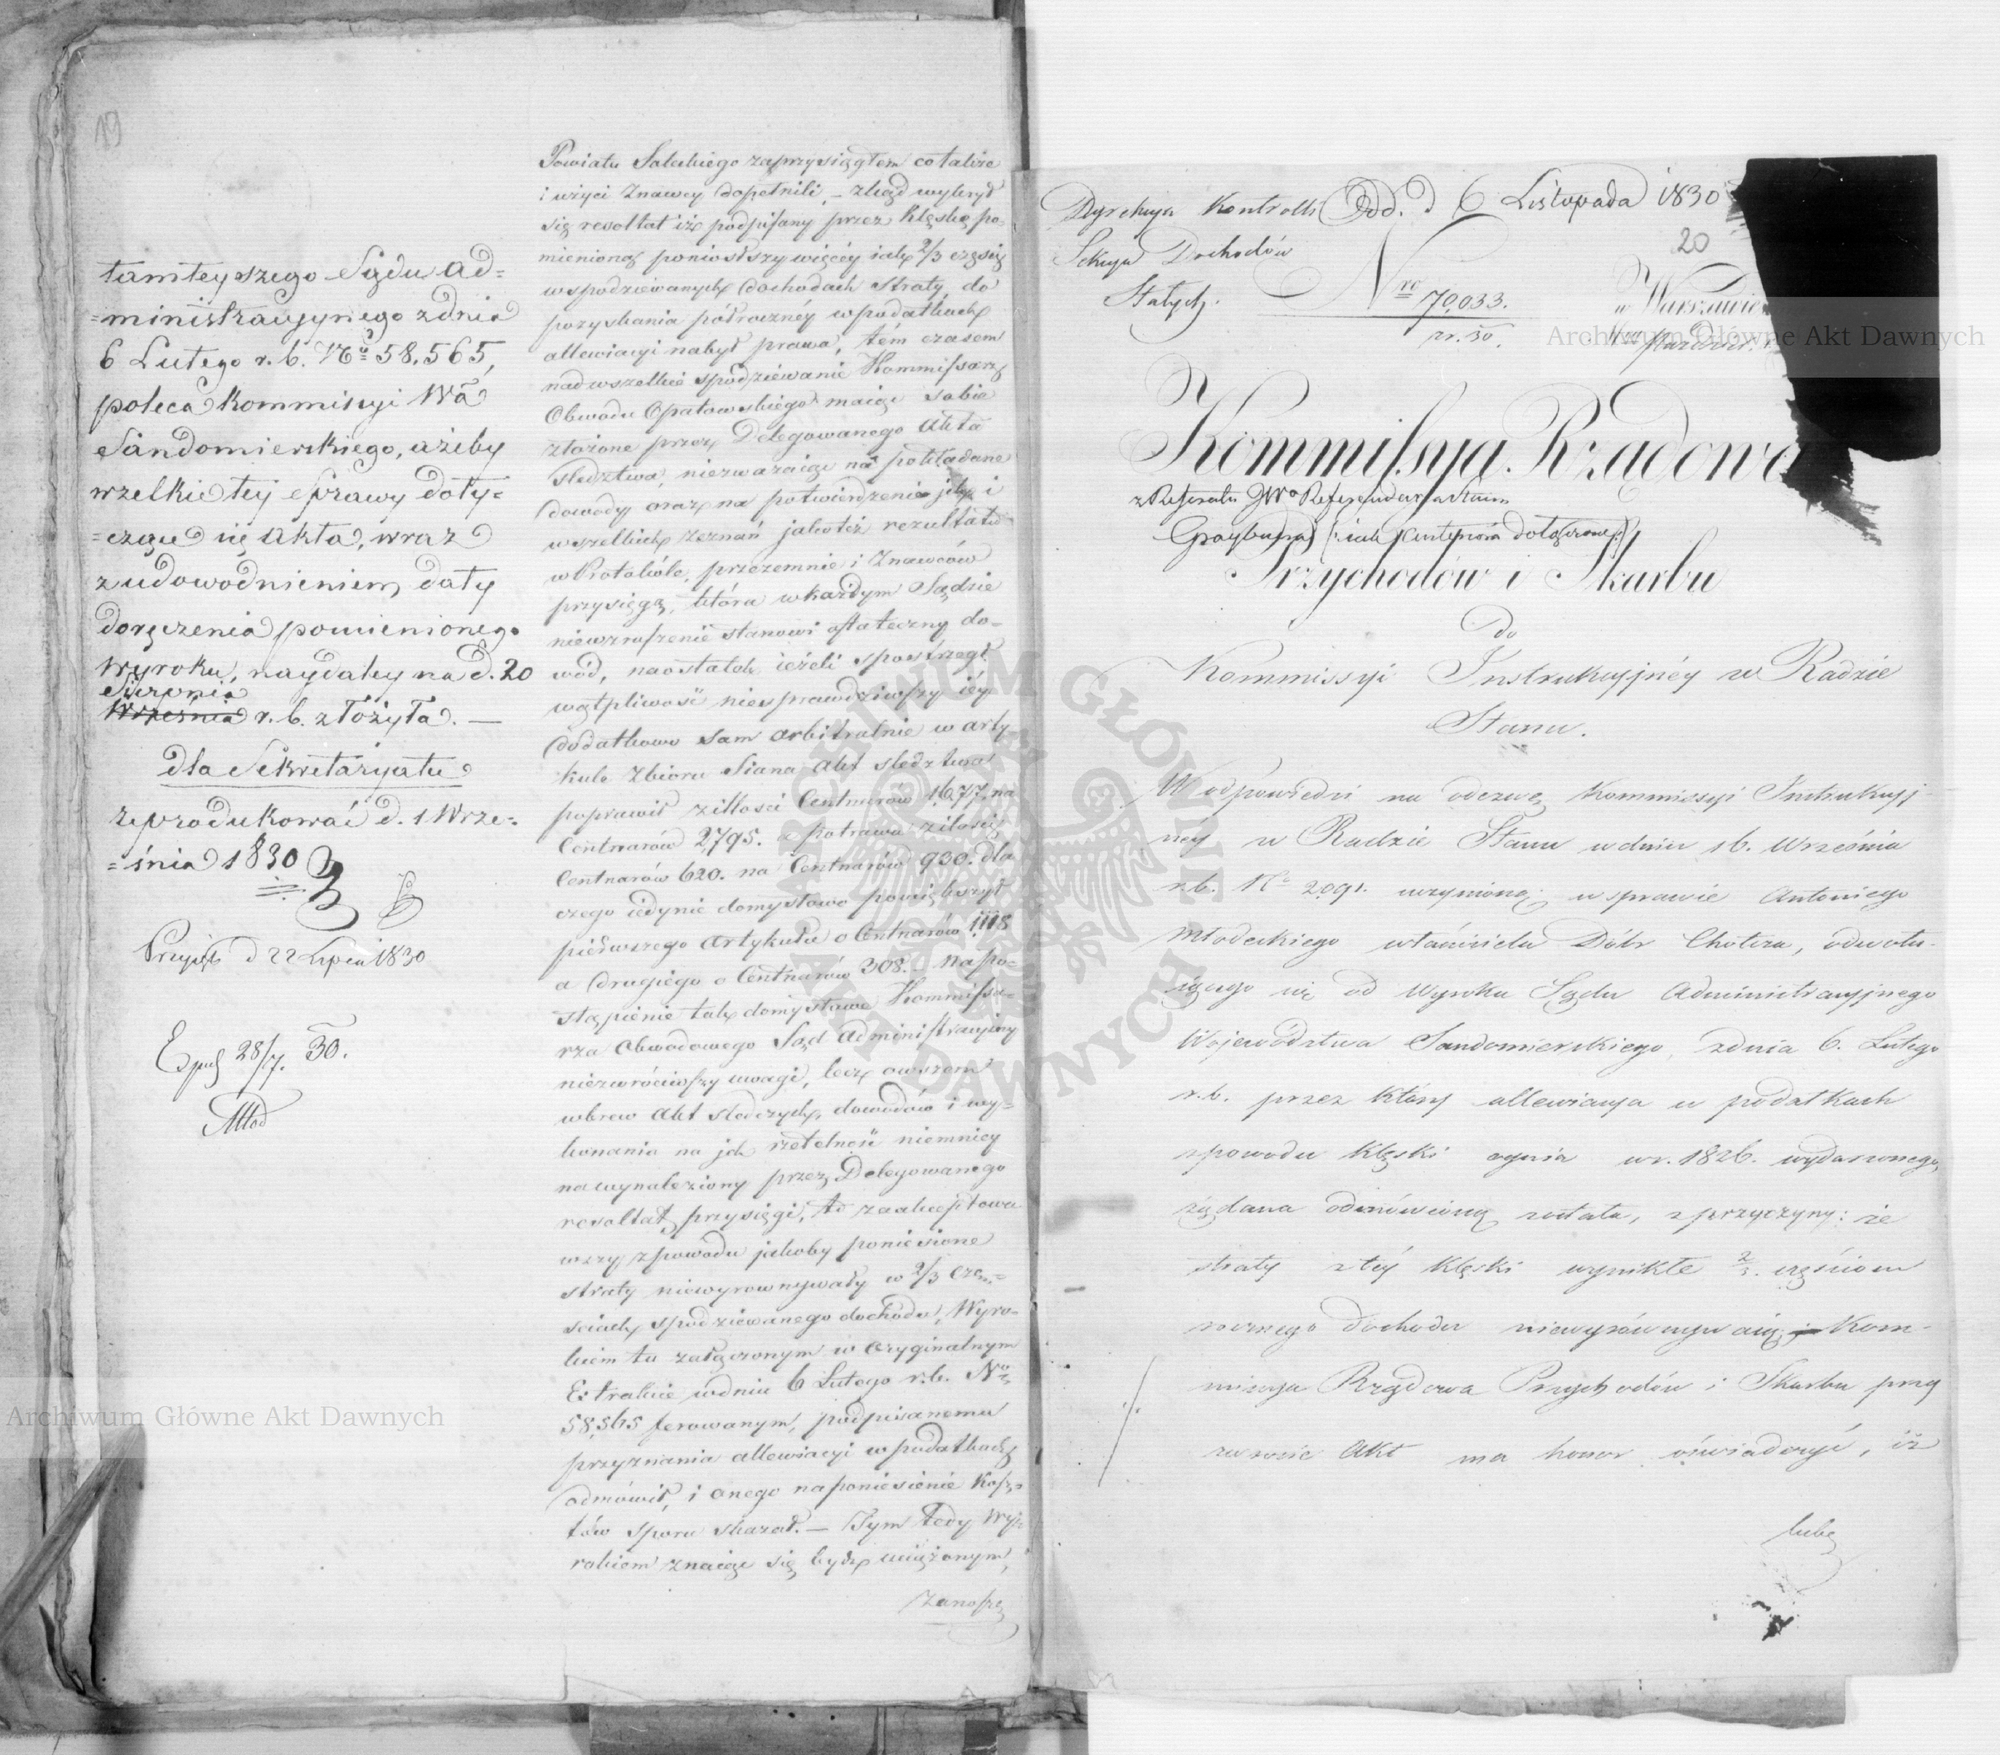 19
tamteyszego Sądu Ad=
=ministracyjnego z dnia
6 Lutego r. b. No 58,565,
poleca Kommissyi Wa
Sandomierskiego, ażeby
wszelkie tej sprawy doty=
=czące się akta, wraz
z udowodnieniem daty
doręczenia pomienionego
wyroku, naydaley na d. 20
Sierpnia
Września r. b. złożyła. —
dla Sekretaryatu
reprodukować d. 1 Wrze=
=śnia 1830
Przyięto d 22 Lipca 1830
Exp 28/7. 30.
Powiatu Soleckiego zaprzysiągłem co także
i użyci Znawcy dopełnili, — zkąd wykrył
się resoltat iż podpisany przez klęskę po=
mienioną poniosłszy więcéy iak 2/3 częscią
w spodziewanych dochodach straty do
pozyskania półrocznéy w podatkach
allewiacyi nabył prawa, tém czasem
nad wszelkie spodziewanie Kommissarz
Obwodu Opatowskiego maiąc sobie
złożone przez Delegowanego Akta
śledztwa, niezważaiąc na pokładane
dowody oraz na potwierdzenie jch i
wszelkich zeznań jakoteż rezultatu
w Protokóle, przezemnie i Znawców
przysięgą, która w każdym Sądzie
niewzruszenie stanowi ostateczny do=
wód, naostatek ieżeli spostrzegł
wątpliwość niesprawdziwszy iéy
dodatkowo sam arbitralnie w arty=
kule Zbioru Siana Akt śledztwa
poprawił z ilości Centnarów 1677. na
Centnarów 2795. a potrawu z ilości
Centnarów 620. na Centnarów 930. dla
czego iedynie domysłowo powiększył
piérwszego Artykułu o Centnarów 1118
a drugiego o Centnarów 308. — Na po=
stąpienie tak domysłowe Kommissa=
rza Obwodowego Sąd Administracyiny
niezwróciwszy uwagi, lecz owszem
wbrew Akt śledczych, dowodów i wy=
konania na jch rzetelność niemniey
na wynaleziony przez Delegowanego
resoltat przysięgi, to zaakceptowa
wszy z powodu jakoby poniesione
straty niewyrownywały w 2/3 Czę=
sciach spodziewanego dochodu, Wyro=
kiem tu załączonym w oryginalnym
Extrakcie w dniu 6 Lutego r. b. No
58,565 ferowanym, podpisanemu
przyznania allewiacyi w podatkach
odmówił, i onego na poniesienie Kosz=
tów sporu skazał. — Tym tedy Wy=
rokiem znaiąc się bydź uciążonym,
Zanoszę
Dyrekcya Kontrolli
Sekcya Dochodów
Stałych.
Odd. d 6 Listopada 1830
20
Nro 70,033.
w Warszawie
Kommissya Rządowa
z Referatu JWo Referendarza Stanu
Przychodów i Skarbu
Do
Kommissyi Instrukcyjnéy w Radzie
Stanu.
W odpowiedzi na odezwę Kommissyi Instrukcyj-
néy w Radzie Stanu w dniu 16. Września
r. b. No 2091. uczynioną w sprawie Antoniego
Młodeckiego właściciela Dóbr Chotcza, odwołu-
iącego się od Wyroku Sądu Administracyjnego
Województwa Sandomierskiego, z dnia 6. Lutego
r. b. przez który allewiacya w podatkach
z powodu klęski ognia w r. 1826. wydarzonego,
żądana odmówioną została, z przyczyny: że
straty z téy klęski wynikłe 2/3. częściom
rocznego dochodu niewyrównywaią; — Kom-
missya Rządowa Przychodów i Skarbu przy
zwrocie Akt ma honor oświadczyć, iż
lubo
Archiwum Główne Akt Dawnych
Archiwum Główne Akt Dawnych
ARCHIWUM GŁÓWNE AKT DAWNYCH